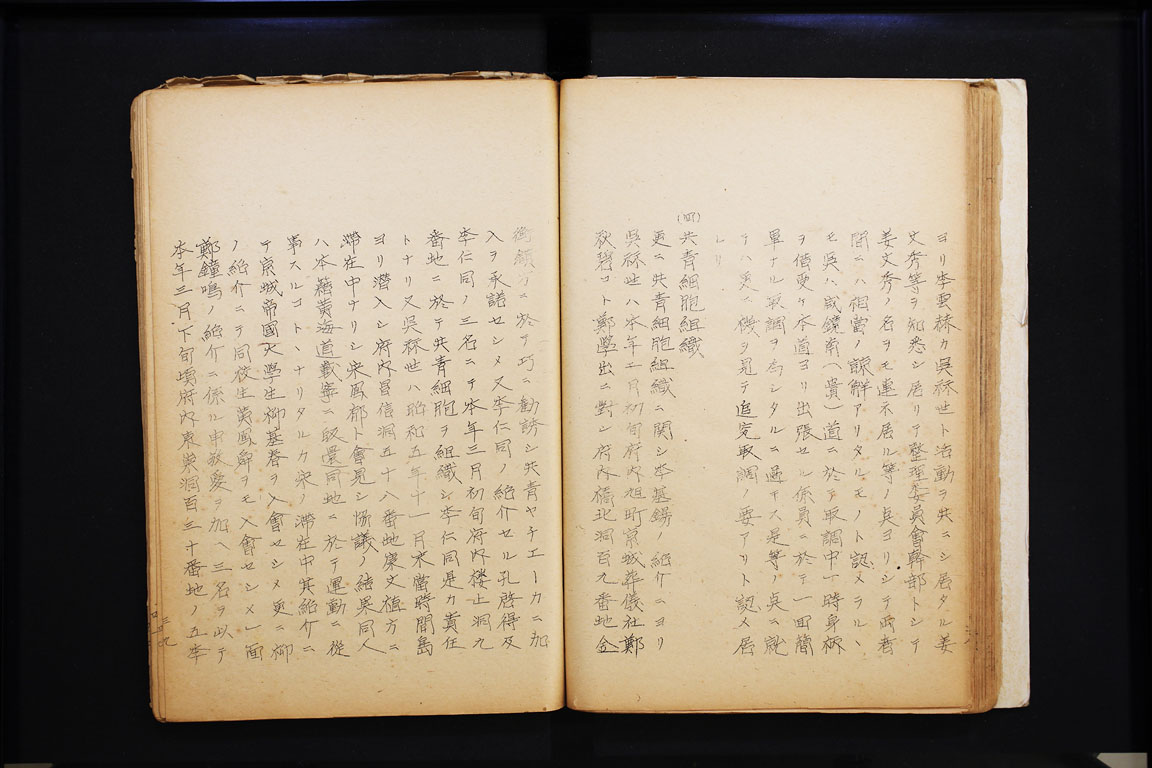 ヨリ李雲赫カ吳祘世ト活動ヲ共ニシ居タル姜
文秀等ヲ知悉シ居リテ整理委員會幹部トシテ
姜文秀ノ名ヲモ連ネ居ル等ノ點ヨリシテ両者
間ニハ相當ノ諒解アリタルモノト認メラルヽ
モ吳ハ咸鏡南(貴)道ニ於テ取調中一時身柄
ヲ借受ケ本道ヨリ出張セル係員ニ於テ一回簡
單ナル取調ヲ為シタルニ過キス是等ノ點ニ就
テハ更ニ機ヲ見テ追究取調ノ要アリト認メ居
レリ
(四)共青細胞組織
更ニ共青細胞組織ニ関シ李基錫ノ紹介ニヨリ
吳祘世ハ本年二月初旬府內旭町京城葬儀社鄭
秋碧コト鄭學出ニ對シ府內橋北洞百九番地金
衡顔方ニ於テ巧ニ勸誘シ共青ヤチエーカニ加
入ヲ承諾セシメ又李仁同ノ紹介セル孔啓得及
李仁同ノ三名ニテ本年三月初旬府內楼上洞九
番地ニ於テ共青細胞ヲ組織シ李仁同是カ責任
トナリ又吳祘世ハ昭和五年十一月末當時間島
ヨリ潜入シ府內昌信洞五十八番地慶文植方ニ
滞在中ナリシ宋鳳郁ト會見シ協議ノ結果同人
ハ本籍黃海道載寧ニ皈還同地ニ於テ運動ニ從
事スルコトヽナリタルカ宋ノ滞在中其紹介ニ
テ京城帝國大學生柳基春ヲ入會セシメ更ニ柳
ノ紹介ニテ同校生黃鳳鄮ヲモ入會セシメ一面
鄭鐘鳴ノ紹介ニ係ル申敬愛ヲ加ヘ三名ヲ以テ
本年三月下旬頃府內東崇洞百三十番地ノ五李